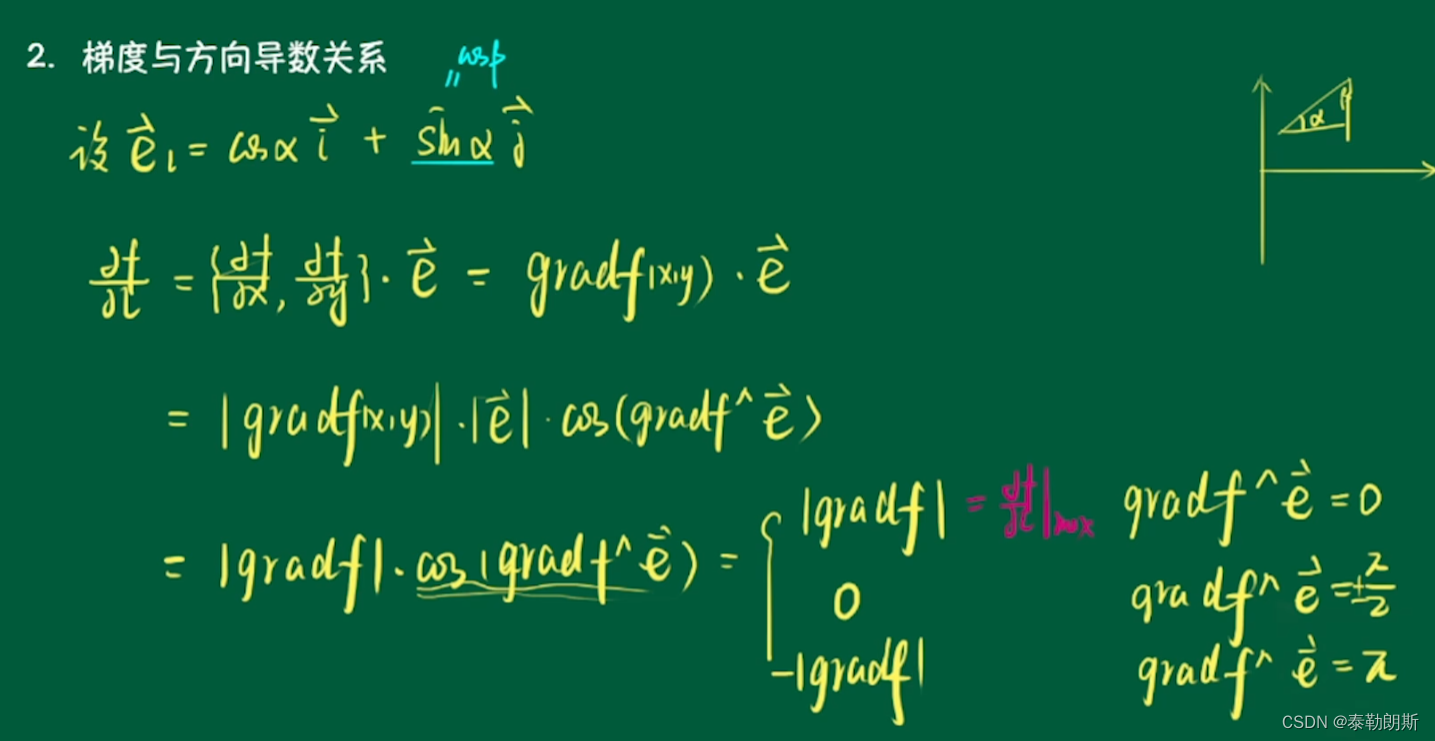 2. 梯度与方向导数关系
cosβ
"
设 e⃗ₗ = cosα i⃗ + sinα j⃗
β
α
∂f/∂l = {∂f/∂x, ∂f/∂y} · e⃗ = gradf(x,y) · e⃗
= |gradf(x,y)| · |e⃗| · cos(gradf^e⃗)
= |gradf| · cos(gradf^e⃗) = { |gradf| = ∂f/∂l|max gradf^e⃗ = 0
0 gradf^e⃗ = ±π/2
-|gradf| gradf^e⃗ = π
CSDN @泰勒朗斯